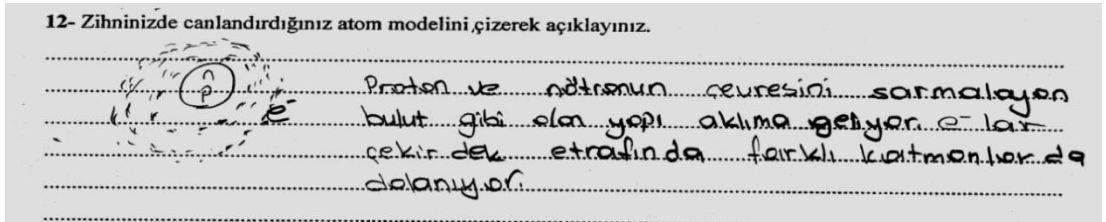 12- Zihninizde canlandırdığınız atom modelini,çizerek açıklayınız.
n
p
e-
Proton ve nötronun çevresini sarmalayan
bulut gibi olan yapı aklıma geliyor. e- lar
çekirdek etrafında farklı katmanlarda
dolanıyor.